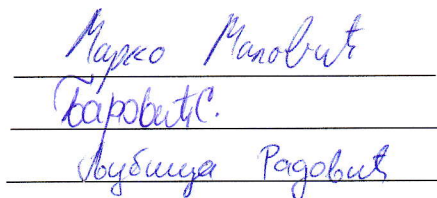 Марко Маловић
Ђаровић С.
Љубица Радовић